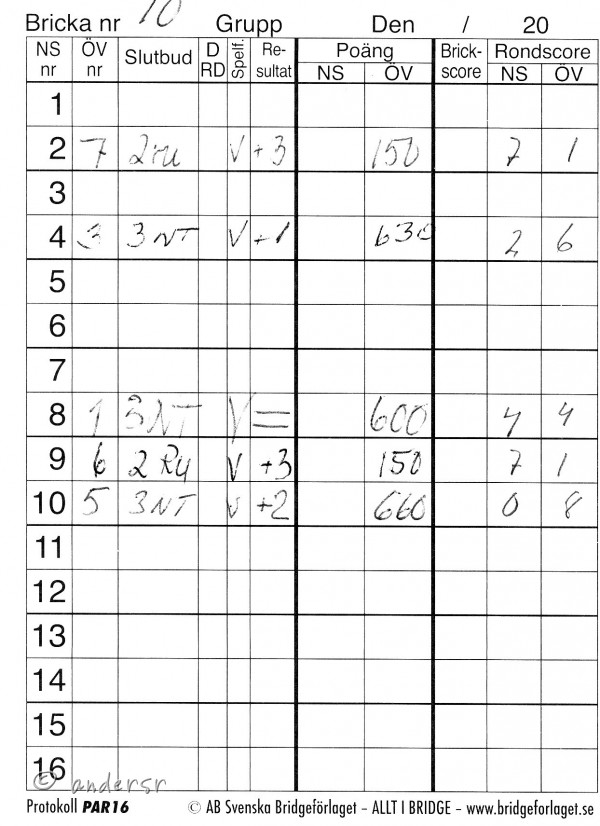 Bricka nr 10 Grupp Den / 20
NS nr ÖV nr Slutbud D RD Spelf. Re-sultat Poäng NS ÖV Brick-score Rondscore NS ÖV
1
2 7 2ru V +3 150 7 1
3
4 3 3NT V +1 630 2 6
5
6
7
8 1 3NT V = 600 4 4
9 6 2 Ru V +3 150 7 1
10 5 3NT V +2 660 0 8
11
12
13
14
15
16
© andersr
Protokoll PAR16 © AB Svenska Bridgeförlaget – ALLT I BRIDGE – www.bridgeforlaget.se